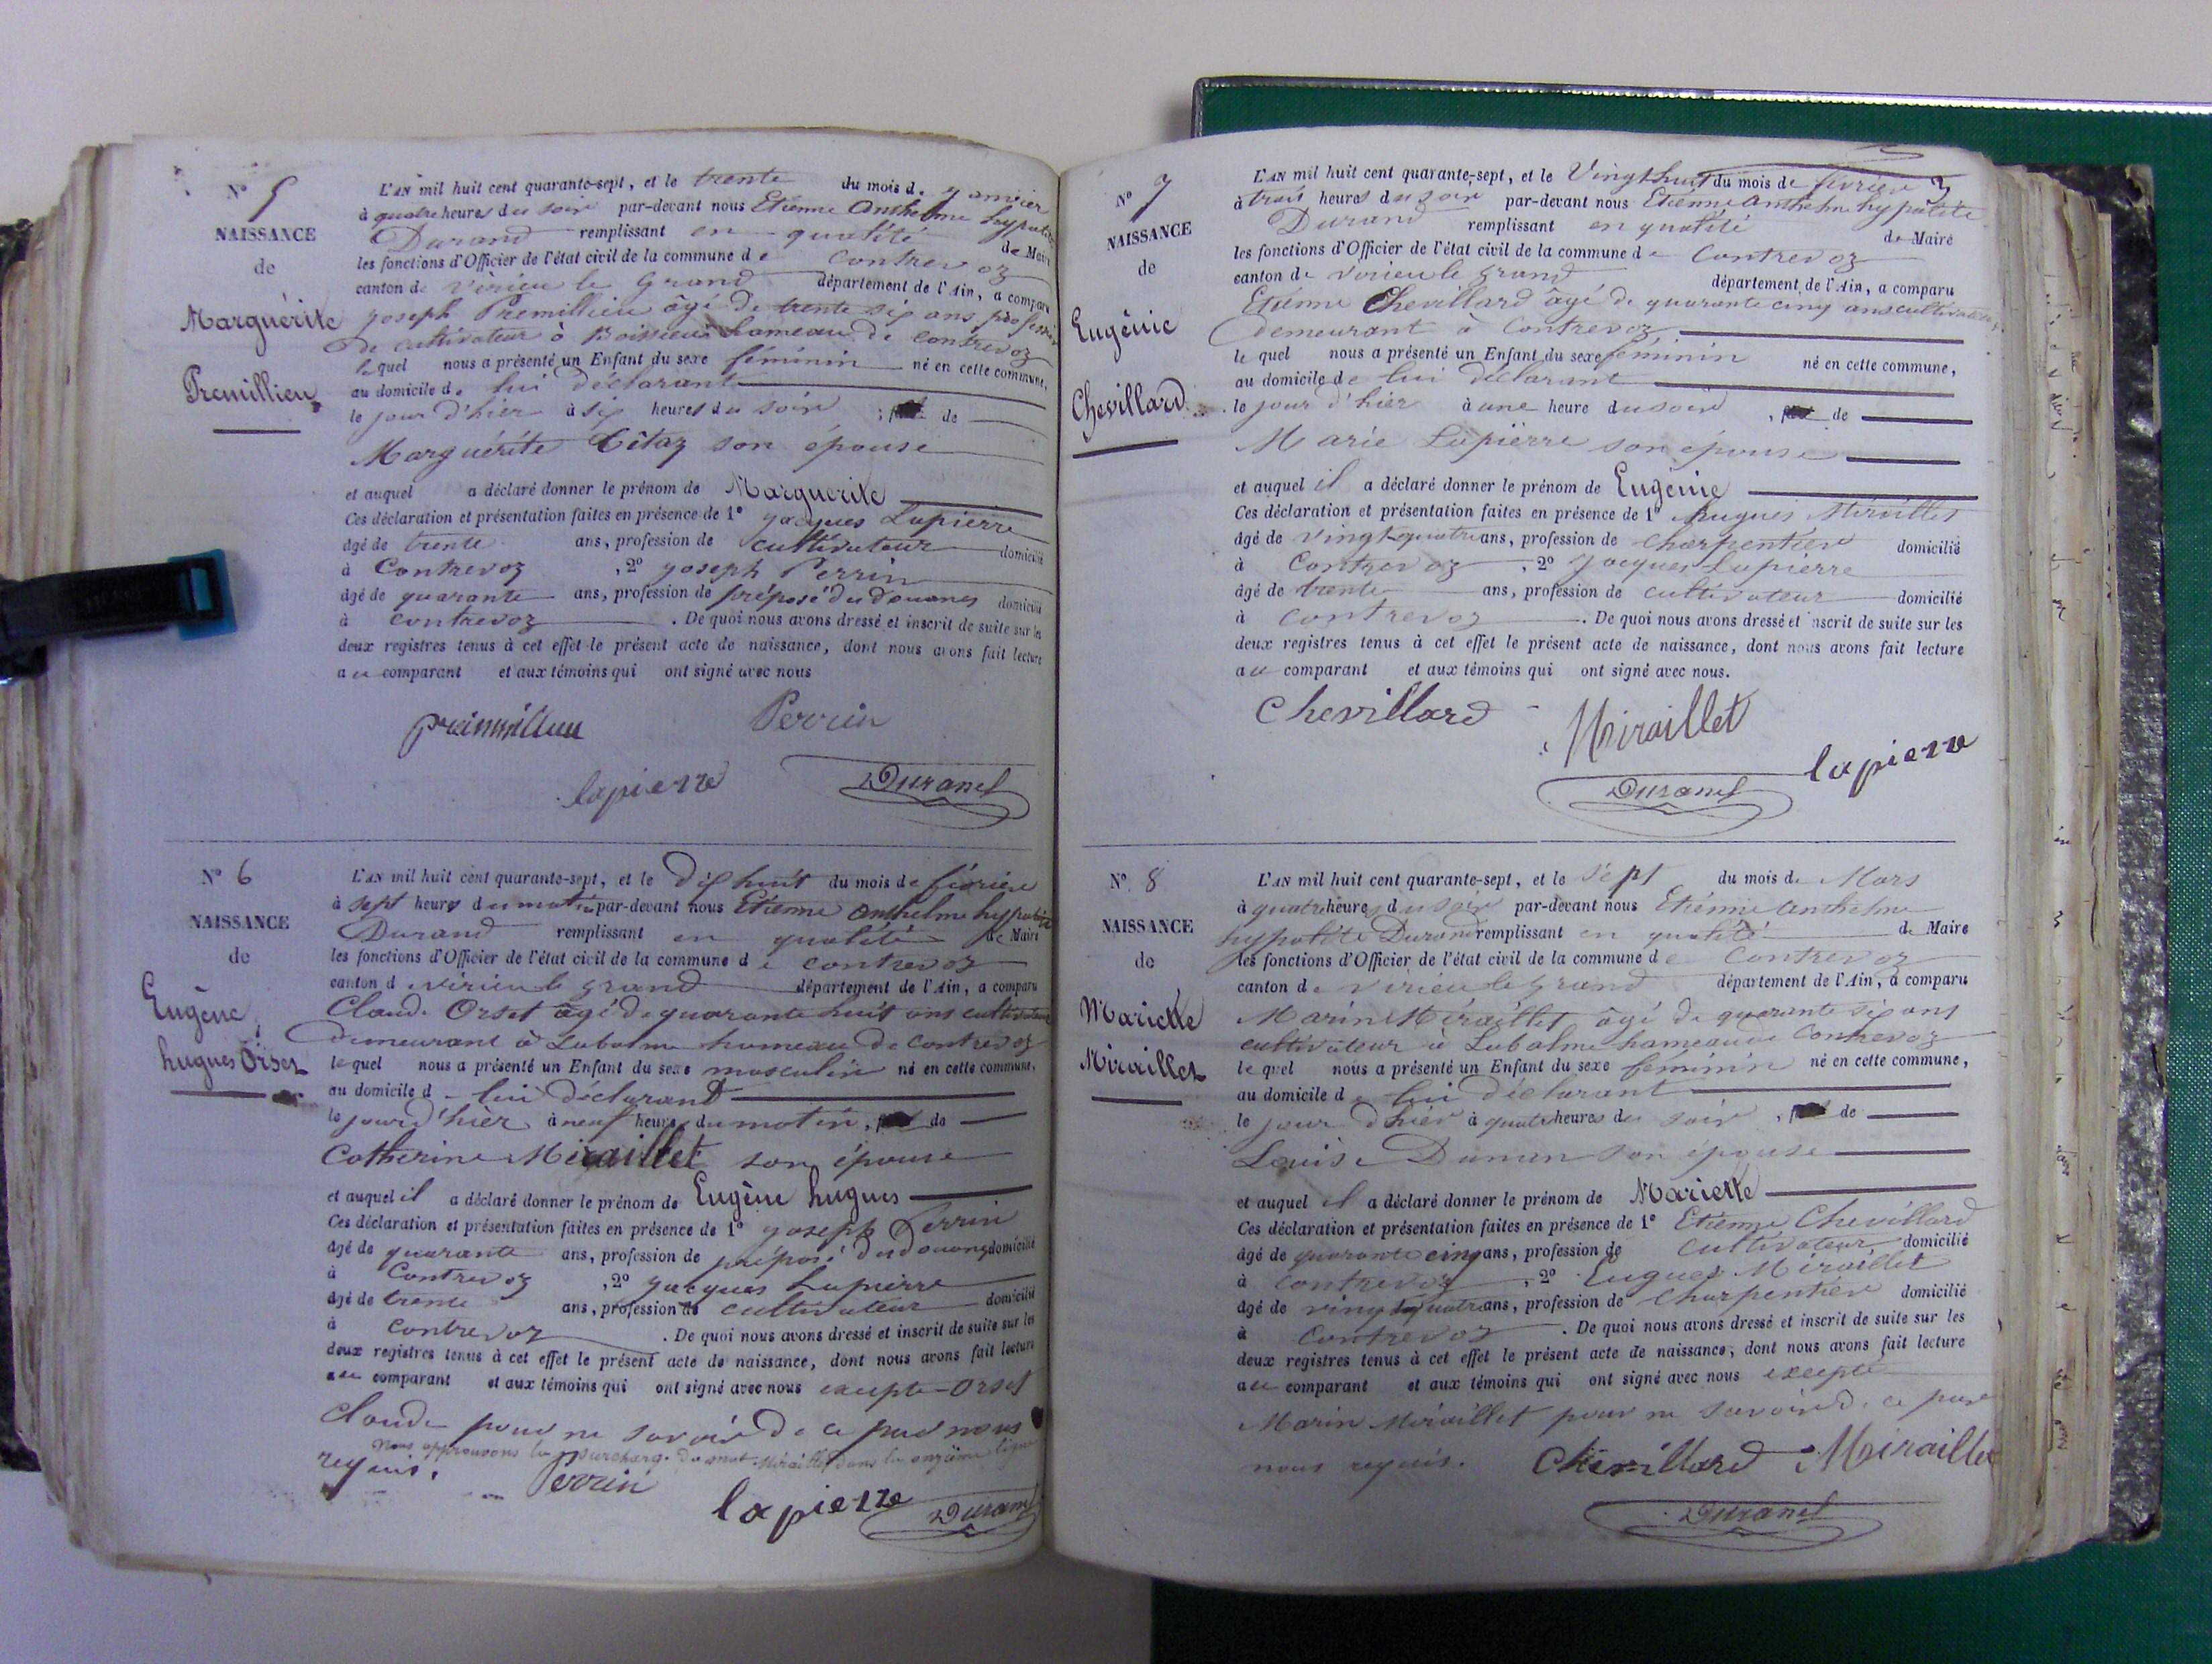 N° 5
NAISSANCE
de
Marguérite
Premillieu
L'AN mil huit cent quarante-sept, et le trente du mois de janvier
à quatre heures du soir par-devant nous Etienne Anthelme hypolite
Durand remplissant en qualité de Maire
les fonctions d'Officier de l'état civil de la commune de Contrevoz
canton de Virieu le Grand département de l'Ain, a comparu
joseph Premillieu âgé de trente six ans profession
de cultivateur à Boissieu hameau de Contrevoz
lequel nous a présenté un Enfant du sexe féminin né en cette commune,
au domicile de lui déclarant
le jour d'hier à six heures du soir, de
Marguérite Citaz son épouse
et auquel a déclaré donner le prénom de Marguerite
Ces déclaration et présentation faites en présence de 1° jacques Lapierre
âgé de trente ans, profession de cultivateur domicilié
à Contrevoz, 2° joseph Perrin
âgé de quarante ans, profession de préposé du douanes domicilié
à contrevoz. De quoi nous avons dressé et inscrit de suite sur les
deux registres tenus à cet effet le présent acte de naissance, dont nous avons fait lecture
au comparant et aux témoins qui ont signé avec nous
Premillieu Perrin
lapierre Durand
N° 6
NAISSANCE
de
Eugène
hugues Orset
L'AN mil huit cent quarante-sept, et le dix huit du mois de février
à sept heures du matin par-devant nous Etienne Anthelme hypolite
Durand remplissant en qualité de Maire
les fonctions d'Officier de l'état civil de la commune de contrevoz
canton de virieu le grand département de l'Ain, a comparu
Claude Orset âgé de quarante huit ans cultivateur
demeurant à Labalme hameau de Contrevoz
lequel nous a présenté un Enfant du sexe masculin né en cette commune,
au domicile de lui déclarant
le jour d'hier à neuf heures du matin, de
Catherine Miraillet son épouse
et auquel il a déclaré donner le prénom de Eugène hugues
Ces déclaration et présentation faites en présence de 1° joseph Perrin
âgé de quarante ans, profession de préposé du douanes domicilié
à Contrevoz, 2° jacques Lapierre
âgé de trente ans, profession de cultivateur domicilié
à contrevoz. De quoi nous avons dressé et inscrit de suite sur les
deux registres tenus à cet effet le présent acte de naissance, dont nous avons fait lecture
au comparant et aux témoins qui ont signé avec nous excepté Orset
Claude pour ne savoir de ce par nous
Nous approuvons la surcharge du mot Miraillet dans la onzième ligne
requis. Perrin
lapierre Durand
3
N° 7
NAISSANCE
de
Eugénie
Chevillard
L'AN mil huit cent quarante-sept, et le Vingt huit du mois de février
à trois heures du soir par-devant nous Etiénne anthelme hypolite
Durand remplissant en qualité de Maire
les fonctions d'Officier de l'état civil de la commune de Contrevoz
canton de virieu le grand département de l'Ain, a comparu
Etiénne Chevillard âgé de quarante cinq ans cultivateur
demeurant à Contrevoz
lequel nous a présenté un Enfant du sexe féminin né en cette commune,
au domicile de lui déclarant
le jour d'hier à une heure du soir, de
Marie Lapierre son épouse
et auquel il a déclaré donner le prénom de Eugénie
Ces déclaration et présentation faites en présence de 1° hugues Miraillet
âgé de vingt-quatre ans, profession de charpentier domicilié
à Contrevoz, 2° jacques Lapierre
âgé de trente ans, profession de cultivateur domicilié
à contrevoz. De quoi nous avons dressé et inscrit de suite sur les
deux registres tenus à cet effet le présent acte de naissance, dont nous avons fait lecture
au comparant et aux témoins qui ont signé avec nous.
Chevillard Miraillet
Durand lapierre
N° 8
NAISSANCE
de
Mariette
Miraillet
L'AN mil huit cent quarante-sept, et le sept du mois de Mars
à quatre heures du soir par-devant nous Etiénne anthelme
hypolite Durand remplissant en qualité de Maire
les fonctions d'Officier de l'état civil de la commune de Contrevoz
canton de virieu le grand département de l'Ain, a comparu
Marin Miraillet âgé de quarante six ans
cultivateur à Labalme hameau de Contrevoz
lequel nous a présenté un Enfant du sexe féminin né en cette commune,
au domicile de lui déclarant
le jour d'hier à quatre heures du soir, de
Louise Duman son épouse
et auquel il a déclaré donner le prénom de Mariette
Ces déclaration et présentation faites en présence de 1° Etienne Chevillard
âgé de quarante cinq ans, profession de cultivateur domicilié
à contrevoz, 2° hugues Miraillet
âgé de vingt quatre ans, profession de charpentier domicilié
à Contrevoz. De quoi nous avons dressé et inscrit de suite sur les
deux registres tenus à cet effet le présent acte de naissance, dont nous avons fait lecture
au comparant et aux témoins qui ont signé avec nous excepté
Marin Miraillet pour ne savoir de ce par
nous requis. Chevillard Miraillet
Durand